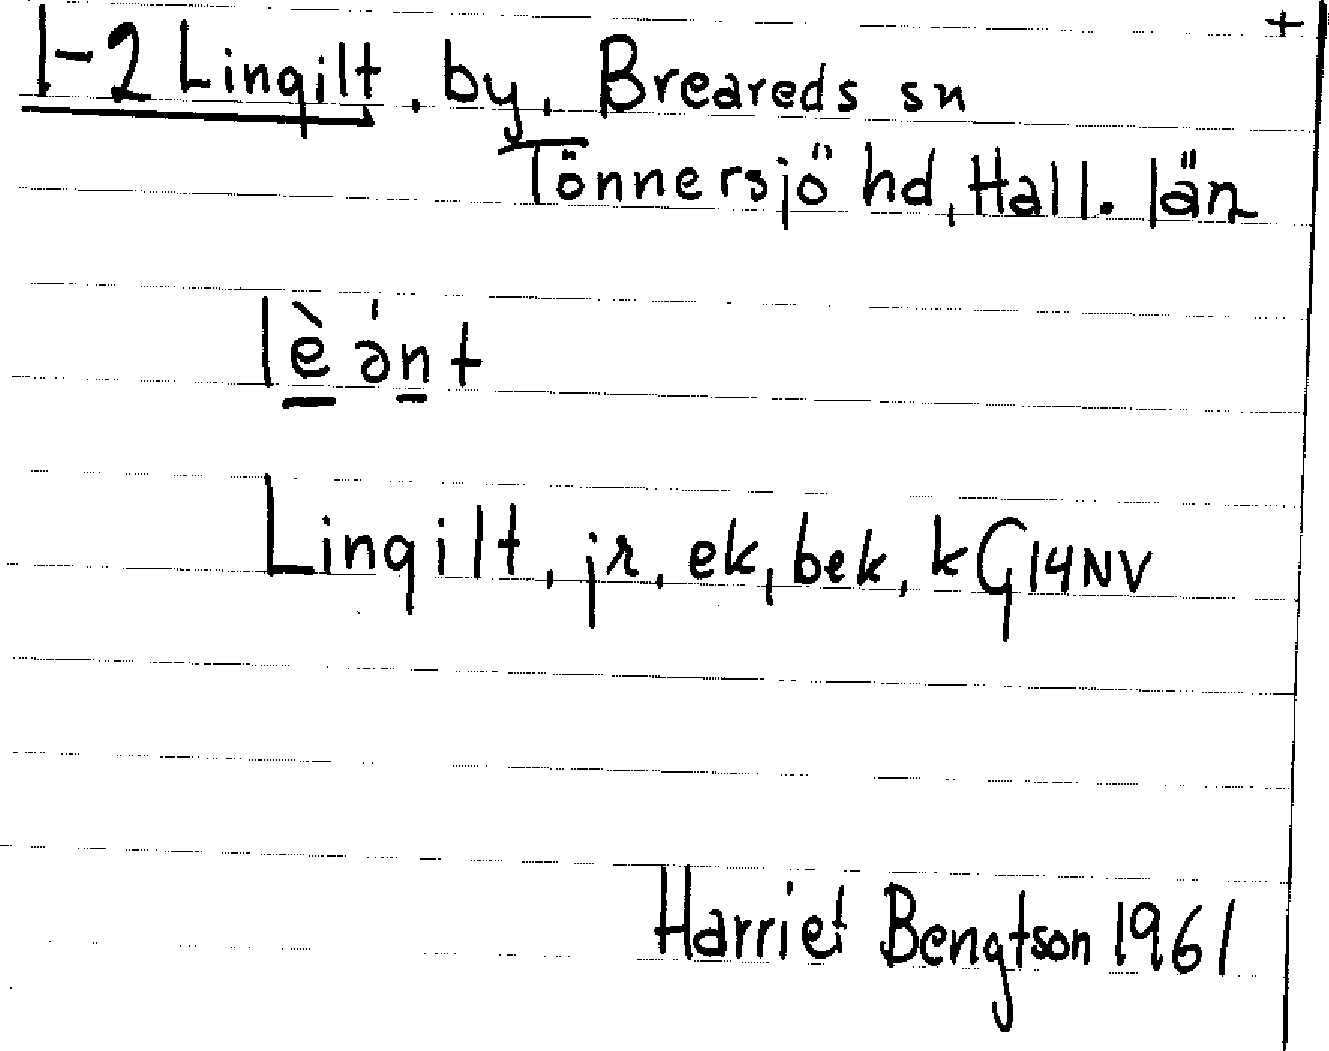 +
1-2 Lingilt, by, Breareds sn
Tönnersjö hd, Hall. län
lè ə́nt
Lingilt, jr, ek, bek, kG14NV
Harriet Bengtson 1961